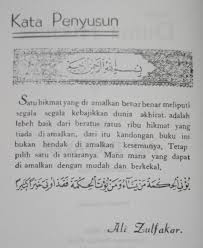 Kata Penyusun
Satu hikmat yang di amalkan benar benar meliputi
segala segala kebajikkan dunia akhirat. adalah
lebeh baik dari beratus ratus ribu hikmat yang
tiada di amalkan, dari itu kandungan buku ini
bukan hendak di amalkan kesemunya, Tetap
pilih satu di antaranya. Mana mana yang dapat
di amalkan dengan mudah dan berkekal,
يؤتي الحكمة من يشاء ومن يؤت الحكمة فقد اوتي خيرا كثيرا
Ali Zulfakar.